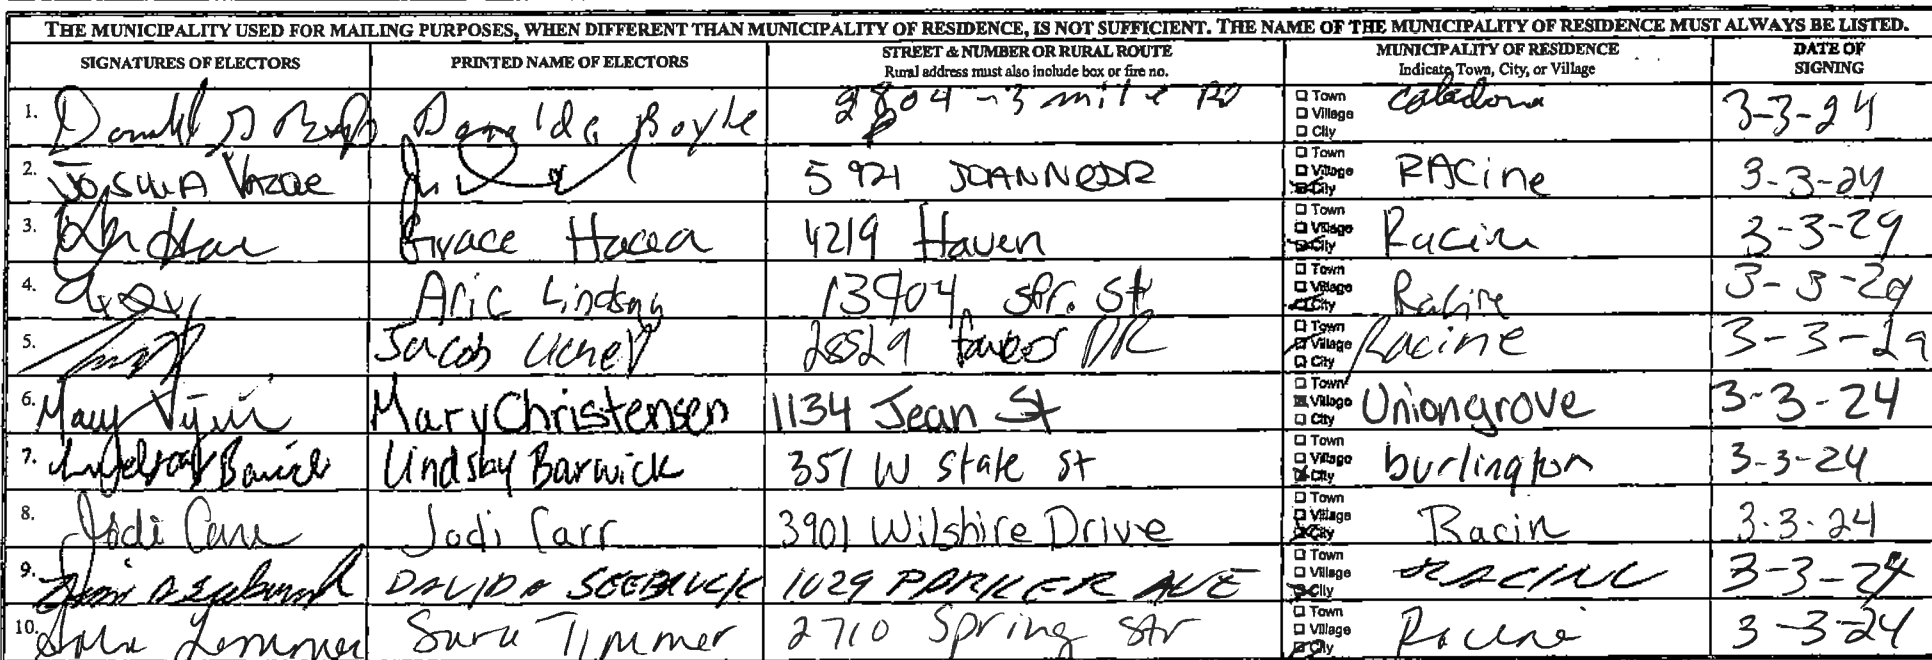 THE MUNICIPALITY USED FOR MAILING PURPOSES, WHEN DIFFERENT THAN MUNICIPALITY OF RESIDENCE, IS NOT SUFFICIENT. THE NAME OF THE MUNICIPALITY OF RESIDENCE MUST ALWAYS BE LISTED.
SIGNATURES OF ELECTORS PRINTED NAME OF ELECTORS STREET & NUMBER OR RURAL ROUTE Rural address must also include box or fire no. MUNICIPALITY OF RESIDENCE Indicate Town, City, or Village DATE OF SIGNING
1. Boyle 2804 - 3 mile RD Town Village City 3-3-24
2. JOSHUA 5921 JOANNE DR Town Village City RACine 3-3-24
3. Grace 4219 Haven Town Village City Racine 3-3-24
4. Aric Lindsay 13904 spr. St Town Village City Racine 3-3-24
5. Jacob DR Town Village City Racine 3-3-24
6. Mary Mary Christensen 1134 Jean St Town Village City Uniongrove 3-3-24
7. Lindsby Barwick 351 W State St Town Village City burlington 3-3-24
8. Jodi Carr Jodi Carr 3901 Wilshire Drive Town Village City Racin 3-3-24
9. DAVID A 1029 PARKER AVE Town Village City RACINE 3-3-24
10. Sara Timmer 2710 Spring Str Town Village City Racine 3-3-24